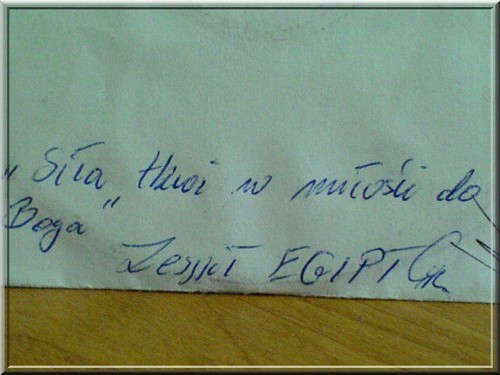 „Siła tkwi w miłości do
Boga"
EGIPT